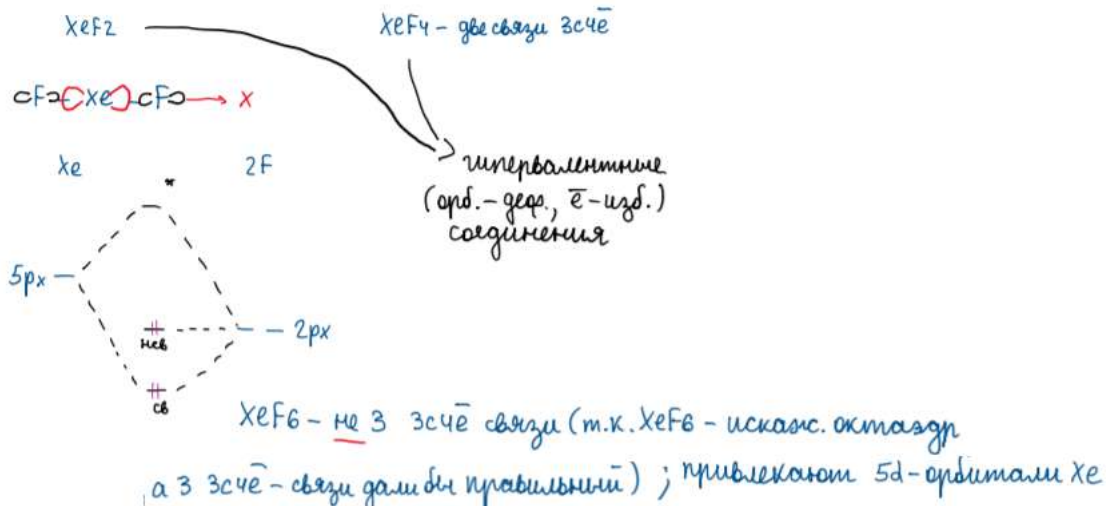 XeF2
XeF4 – две связи 3cчē
F Xe F → x
Xe 2F
*
гипервалентные
(орб.– деф., ē – изб.)
соединения
5px
2px
нсв
св
XeF6 – не 3 3cчē связи (т.к. XeF6 – искаж. октаэдр
а 3 3cчē – связи дали бы правильный) ; привлекают 5d – орбитали Xe